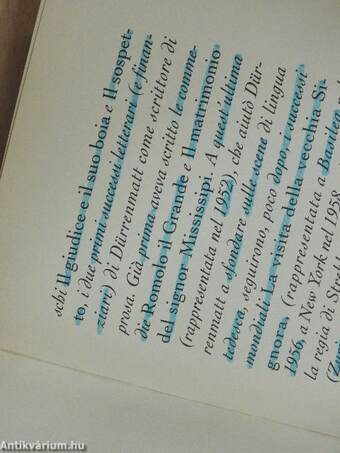 schi Il giudice e il suo boia e Il sospet-
to, i due primi successi letterari (e finan-
ziari) di Dürrenmatt come scrittore di
prosa. Già prima aveva scritto le comme-
die Romolo il Grande e Il matrimonio
del signor Mississippi. A quest'ultima
(rappresentata nel 1952), che aiutò Dür-
renmatt a sfondare sulle scene di lingua
tedesca, seguirono, poco dopo, i successi
mondiali La visita della vecchia Si-
gnora, (rappresentata a Basilea
1956, a New York nel 1958,
la regia di
Antikvárium.hu